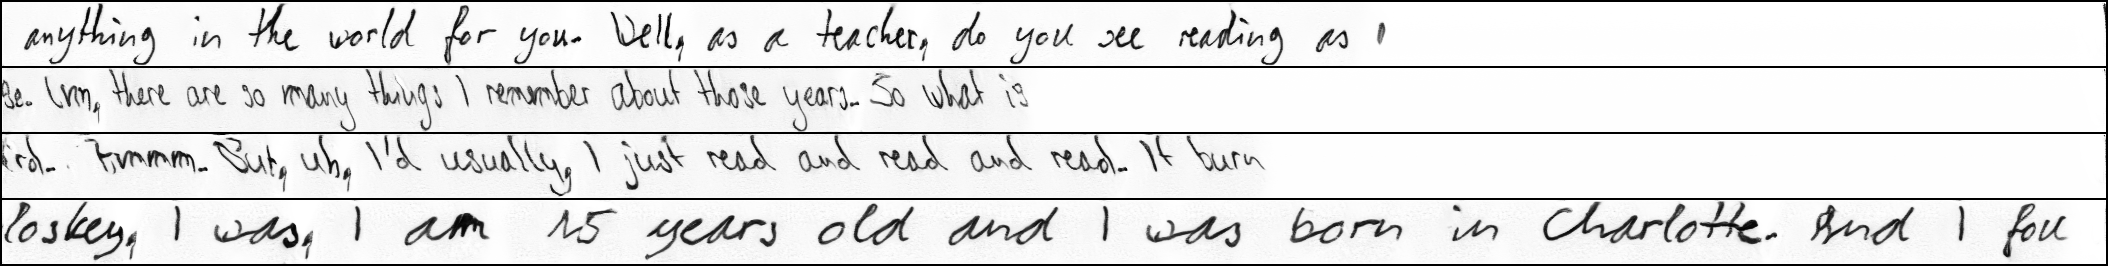 anything in the world for you. Well, as a teacher, do you see reading as
Um, there are so many things I remember about those years. So what is
Hmmmm. But, uh, I'd usually, I just read and read and read. It burn
loskey, I was, I am 15 years old and I was born in Charlotte. And I fou